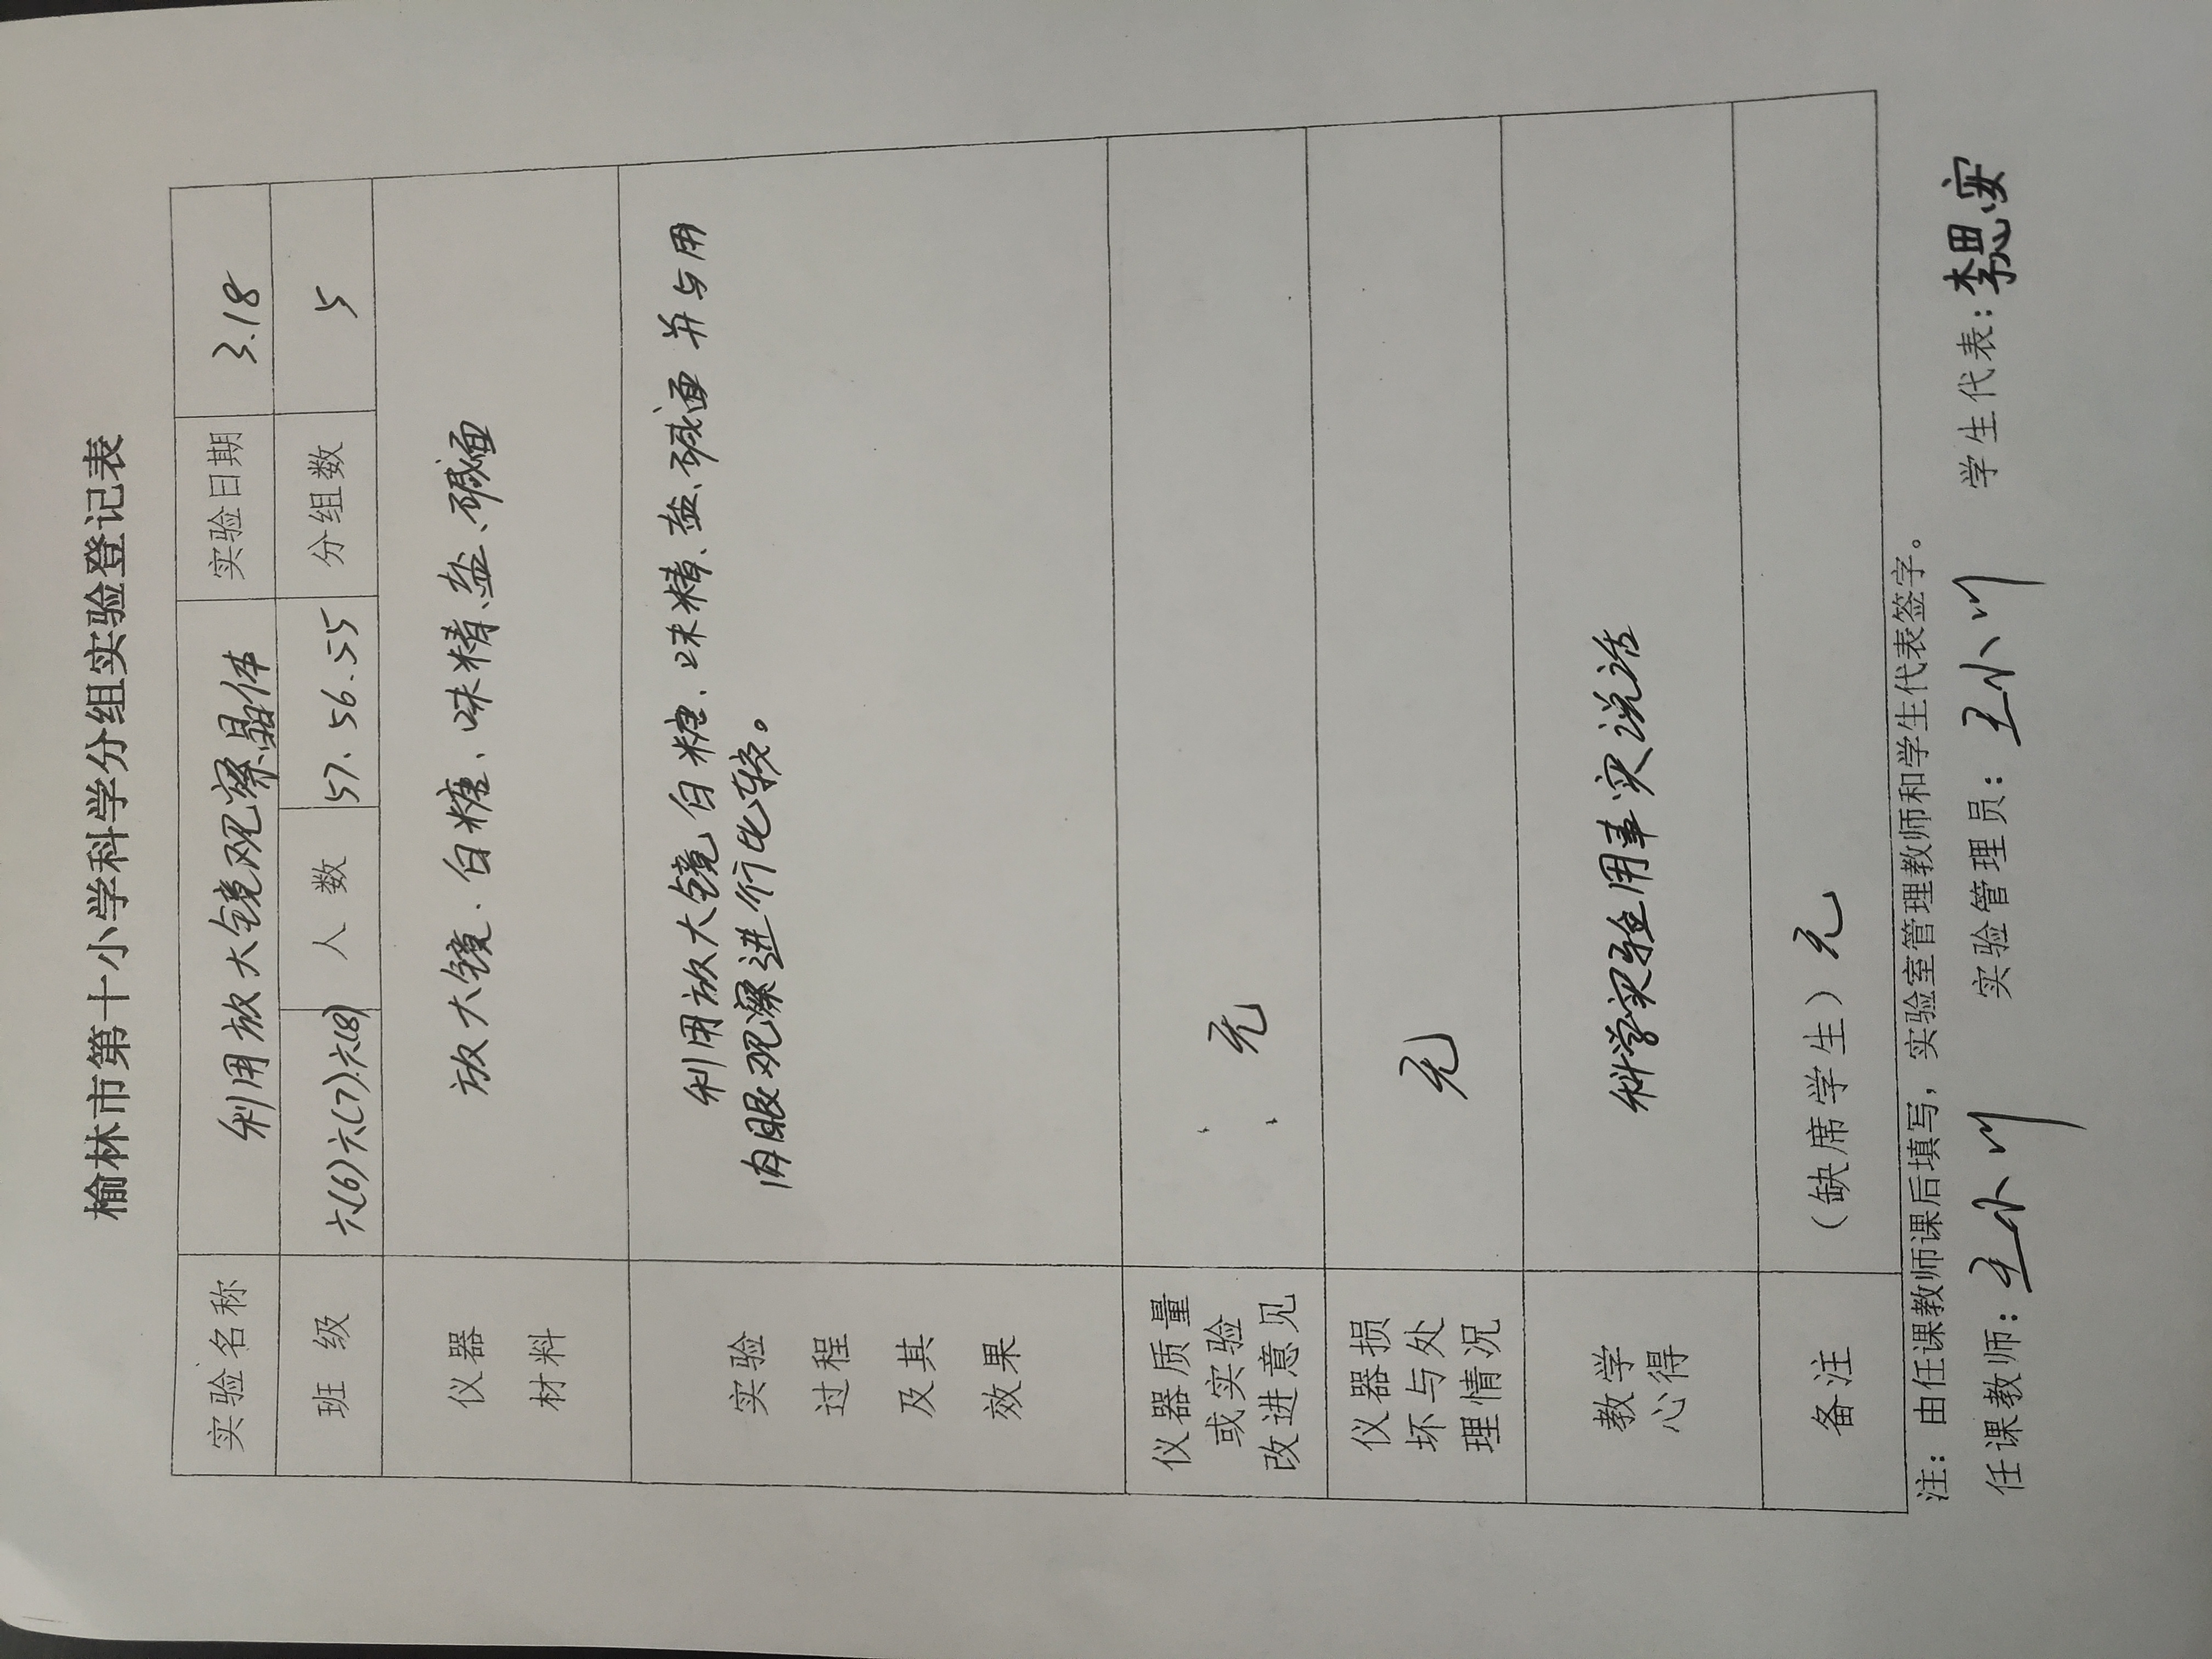 榆林市第十小学科学分组实验登记表
实验名称 利用放大镜观察晶体 实验日期 3.18
班 级 六(6)六(7)六(8) 人 数 57.56.55 分组数 5
仪器
材料
放大镜.白糖、味精、盐、碱面
实验
过程
及其
效果
利用放大镜白糖、味精、盐、碱面并与用
肉眼观察进行比较。
仪器质量
或实验
改进意见
无
仪器损
坏与处
理情况
无
教学
心得
科学实验用事实说话
备注 （缺席学生）无
注：由任课教师课后填写，实验室管理教师和学生代表签字。
任课教师：王小川 实验管理员：王小川 学生代表：李思安